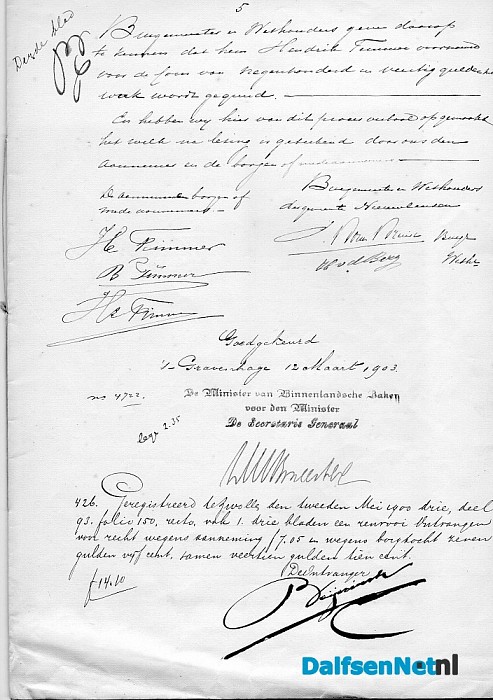 5
Derde blad
Burgemeester en Wethouders geven daarop
te kennen dat hem Hendrik Timmer voornoemd
voor de som van negenhonderd en veertig gulden het
werk wordt gegund.
En hebben wij hiervan dit proces verbaal opgemaakt
het welk na lezing is geteekend door ons den
aannemer en de borgen of medeaannemers
De aannemer borgen of
mede aannemers
Burgemeester en Wethouders
der gemeente Nieuwleusen
H Timmer
Burg
B Timmer
H v d Berg
Weth
H Timmer
Goedgekeurd
's-Gravenhage 12 Maart 1903.
no 4722.
De Minister van Binnenlandsche Zaken
voor den Minister
De Secretaris Generaal
leges 2.35
426. Geregistreerd te Zwolle den tweeden Mei 1900 drie, deel
93. folio 150, recto, vak 1. drie bladen een renvooi Ontvangen
voor recht wegens aanneming f 7.05 en wegens borgtocht zeven
gulden vijf cent. samen veertien gulden tien cent.
f 14.10
De Ontvanger
DalfsenNet.nl